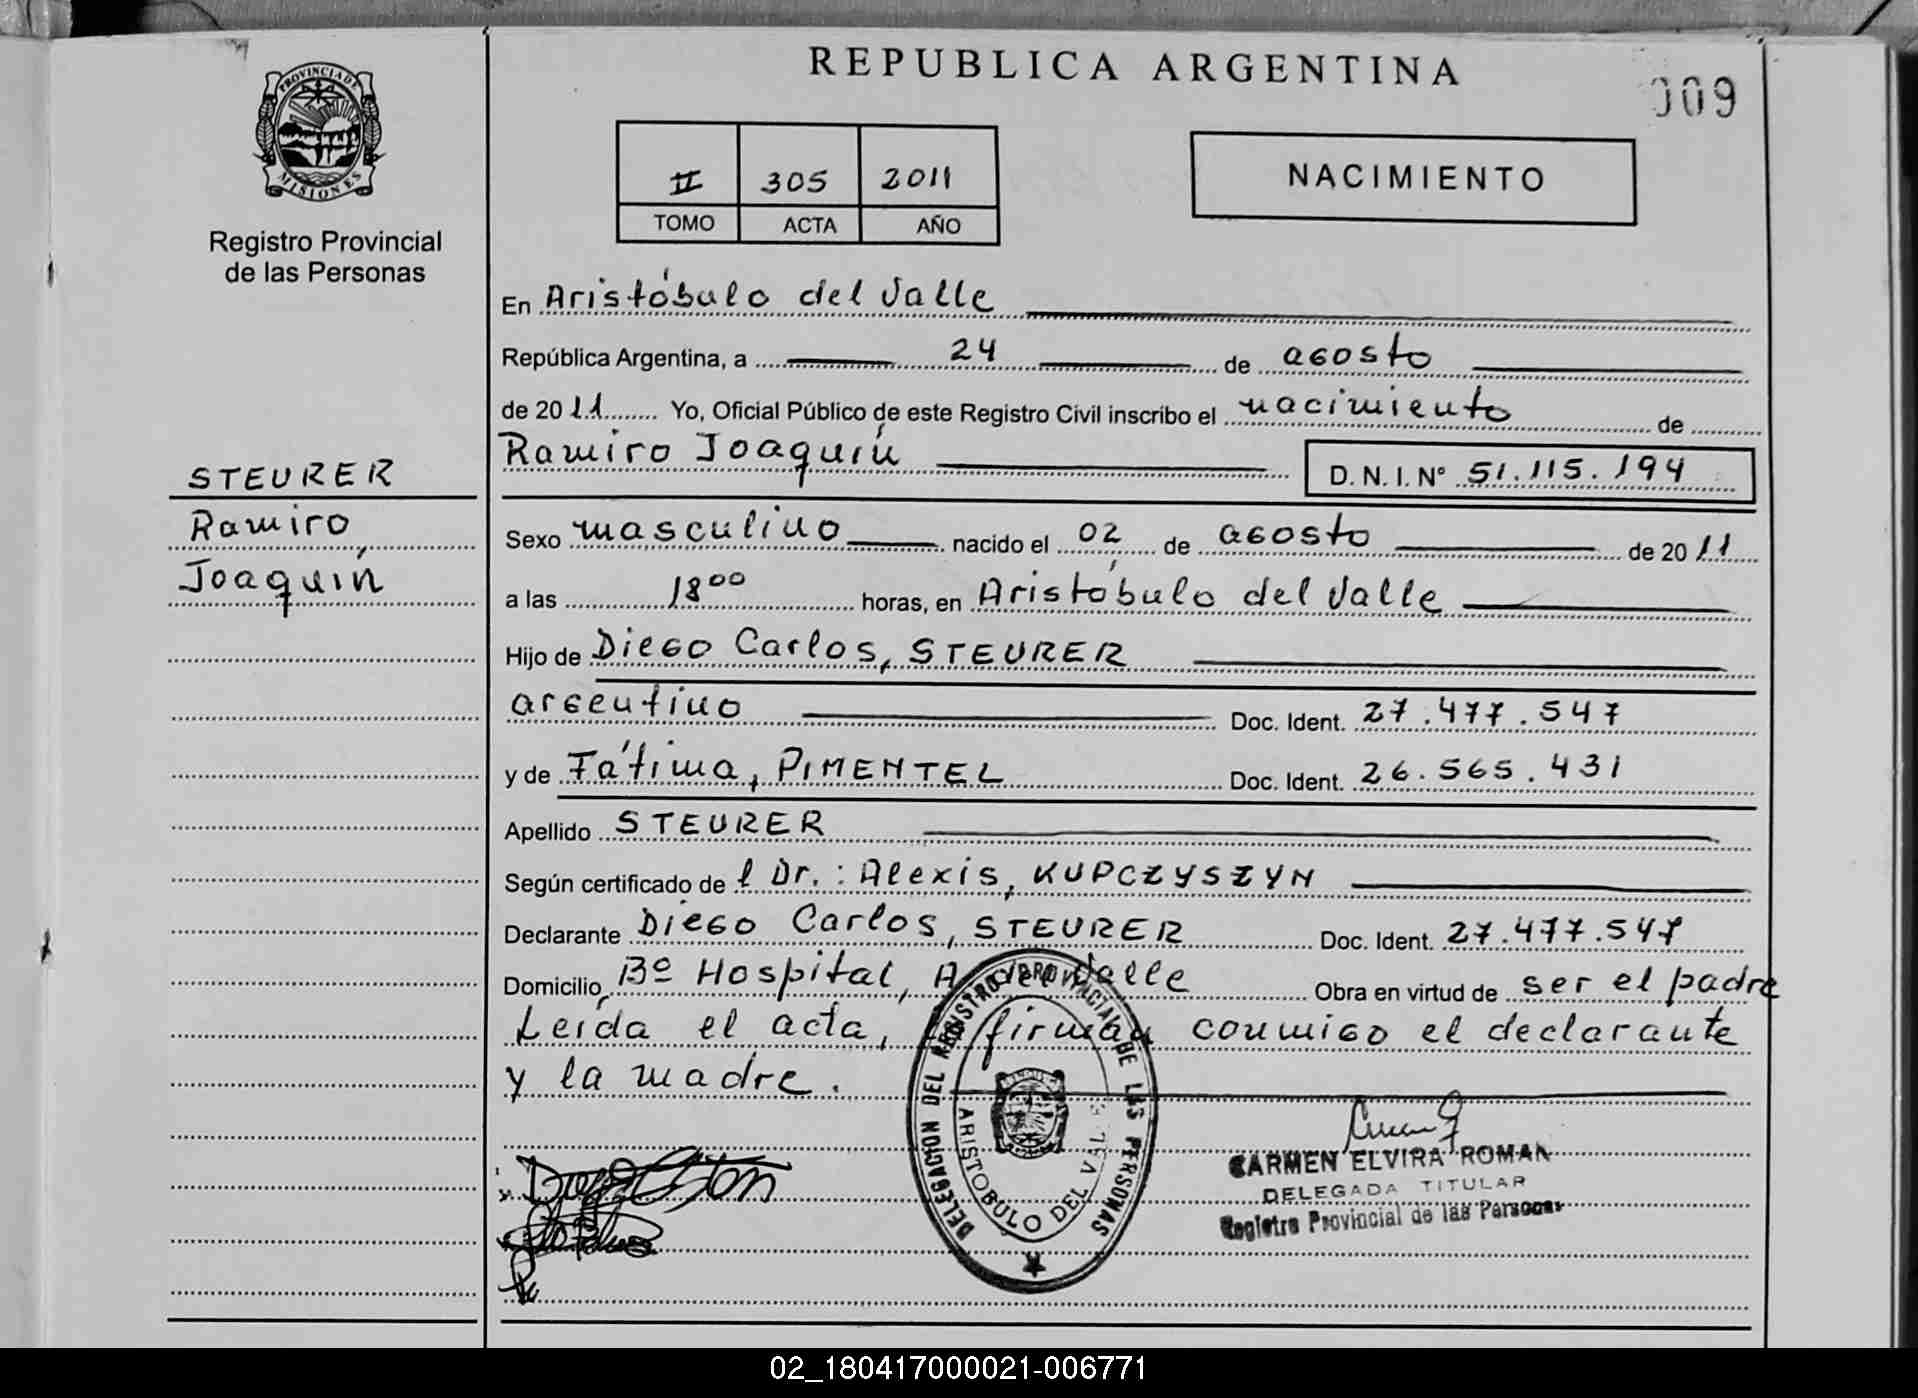 REPUBLICA ARGENTINA
009
PROVINCIA DE
MISIONES
Registro Provincial
de las Personas
II 305 2011
TOMO ACTA AÑO
NACIMIENTO
En Aristóbulo del Valle
República Argentina, a 24 de agosto
de 2011 Yo, Oficial Público de este Registro Civil inscribo el nacimiento de
Ramiro Joaquín D. N. I. N° 51.115.194
STEURER
Ramiro
Joaquín
Sexo masculino nacido el 02 de agosto de 2011
a las 18 00 horas, en Aristóbulo del Valle
Hijo de Diego Carlos, STEURER
argentino Doc. Ident. 27.477.547
y de Fátima, PIMENTEL Doc. Ident. 26.565.431
Apellido STEURER
Según certificado de l Dr.: Alexis, KUPCZYSZYN
Declarante Diego Carlos, STEURER Doc. Ident. 27.477.547
Domicilio Bº Hospital, A. del Valle Obra en virtud de ser el padre
Leída el acta, firman conmigo el declarante
y la madre.
DELEGACION DEL REGISTRO PROVINCIAL DE LAS PERSONAS
ARISTOBULO DEL VALLE
CARMEN ELVIRA ROMAN
DELEGADA TITULAR
Registro Provincial de las Personas
02_180417000021-006771